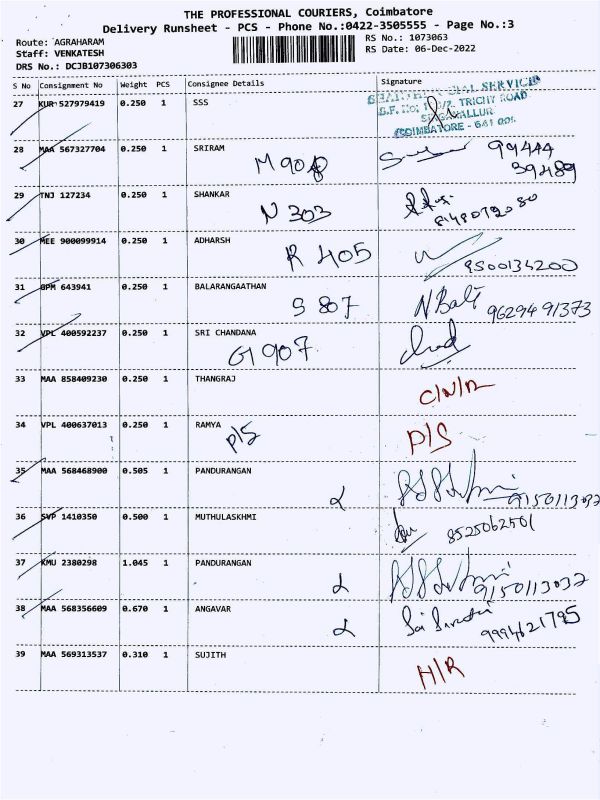 THE PROFESSIONAL COURIERS, Coimbatore
Delivery Runsheet - PCS - Phone No.:0422-3505555 - Page No.:3
Route: AGRAHARAM
Staff: VENKATESH
DRS No.: DCJB107306303
RS No.: 1073063
RS Date: 06-Dec-2022
S No Consignment No Weight PCS Consignee Details Signature
27 KUR 527979419 0.250 1 SSS
TRICHY ROAD
COIMBATORE - 641 005
28 MAA 567327704 0.250 1 SRIRAM
M 908
99444
39489
29 TNJ 127234 0.250 1 SHANKAR
N 303
8148072080
30 MEE 900099914 0.250 1 ADHARSH
R 405
9500134200
31 GPM 643941 0.250 1 BALARANGAATHAN
S 807
N Bali 9629491373
32 VPL 400592237 0.250 1 SRI CHANDANA
G1 907
33 MAA 858409230 0.250 1 THANGRAJ
C/N/R
34 VPL 400637013 0.250 1 RAMYA
P/S
P/S
35 MAA 568468900 0.505 1 PANDURANGAN
9150113032
36 SVP 1410350 0.500 1 MUTHULASKHMI
8525062501
37 KMU 2380298 1.045 1 PANDURANGAN
9150113032
38 MAA 568356609 0.670 1 ANGAVAR
Sai 9994621795
39 MAA 569313537 0.310 1 SUJITH
H/R